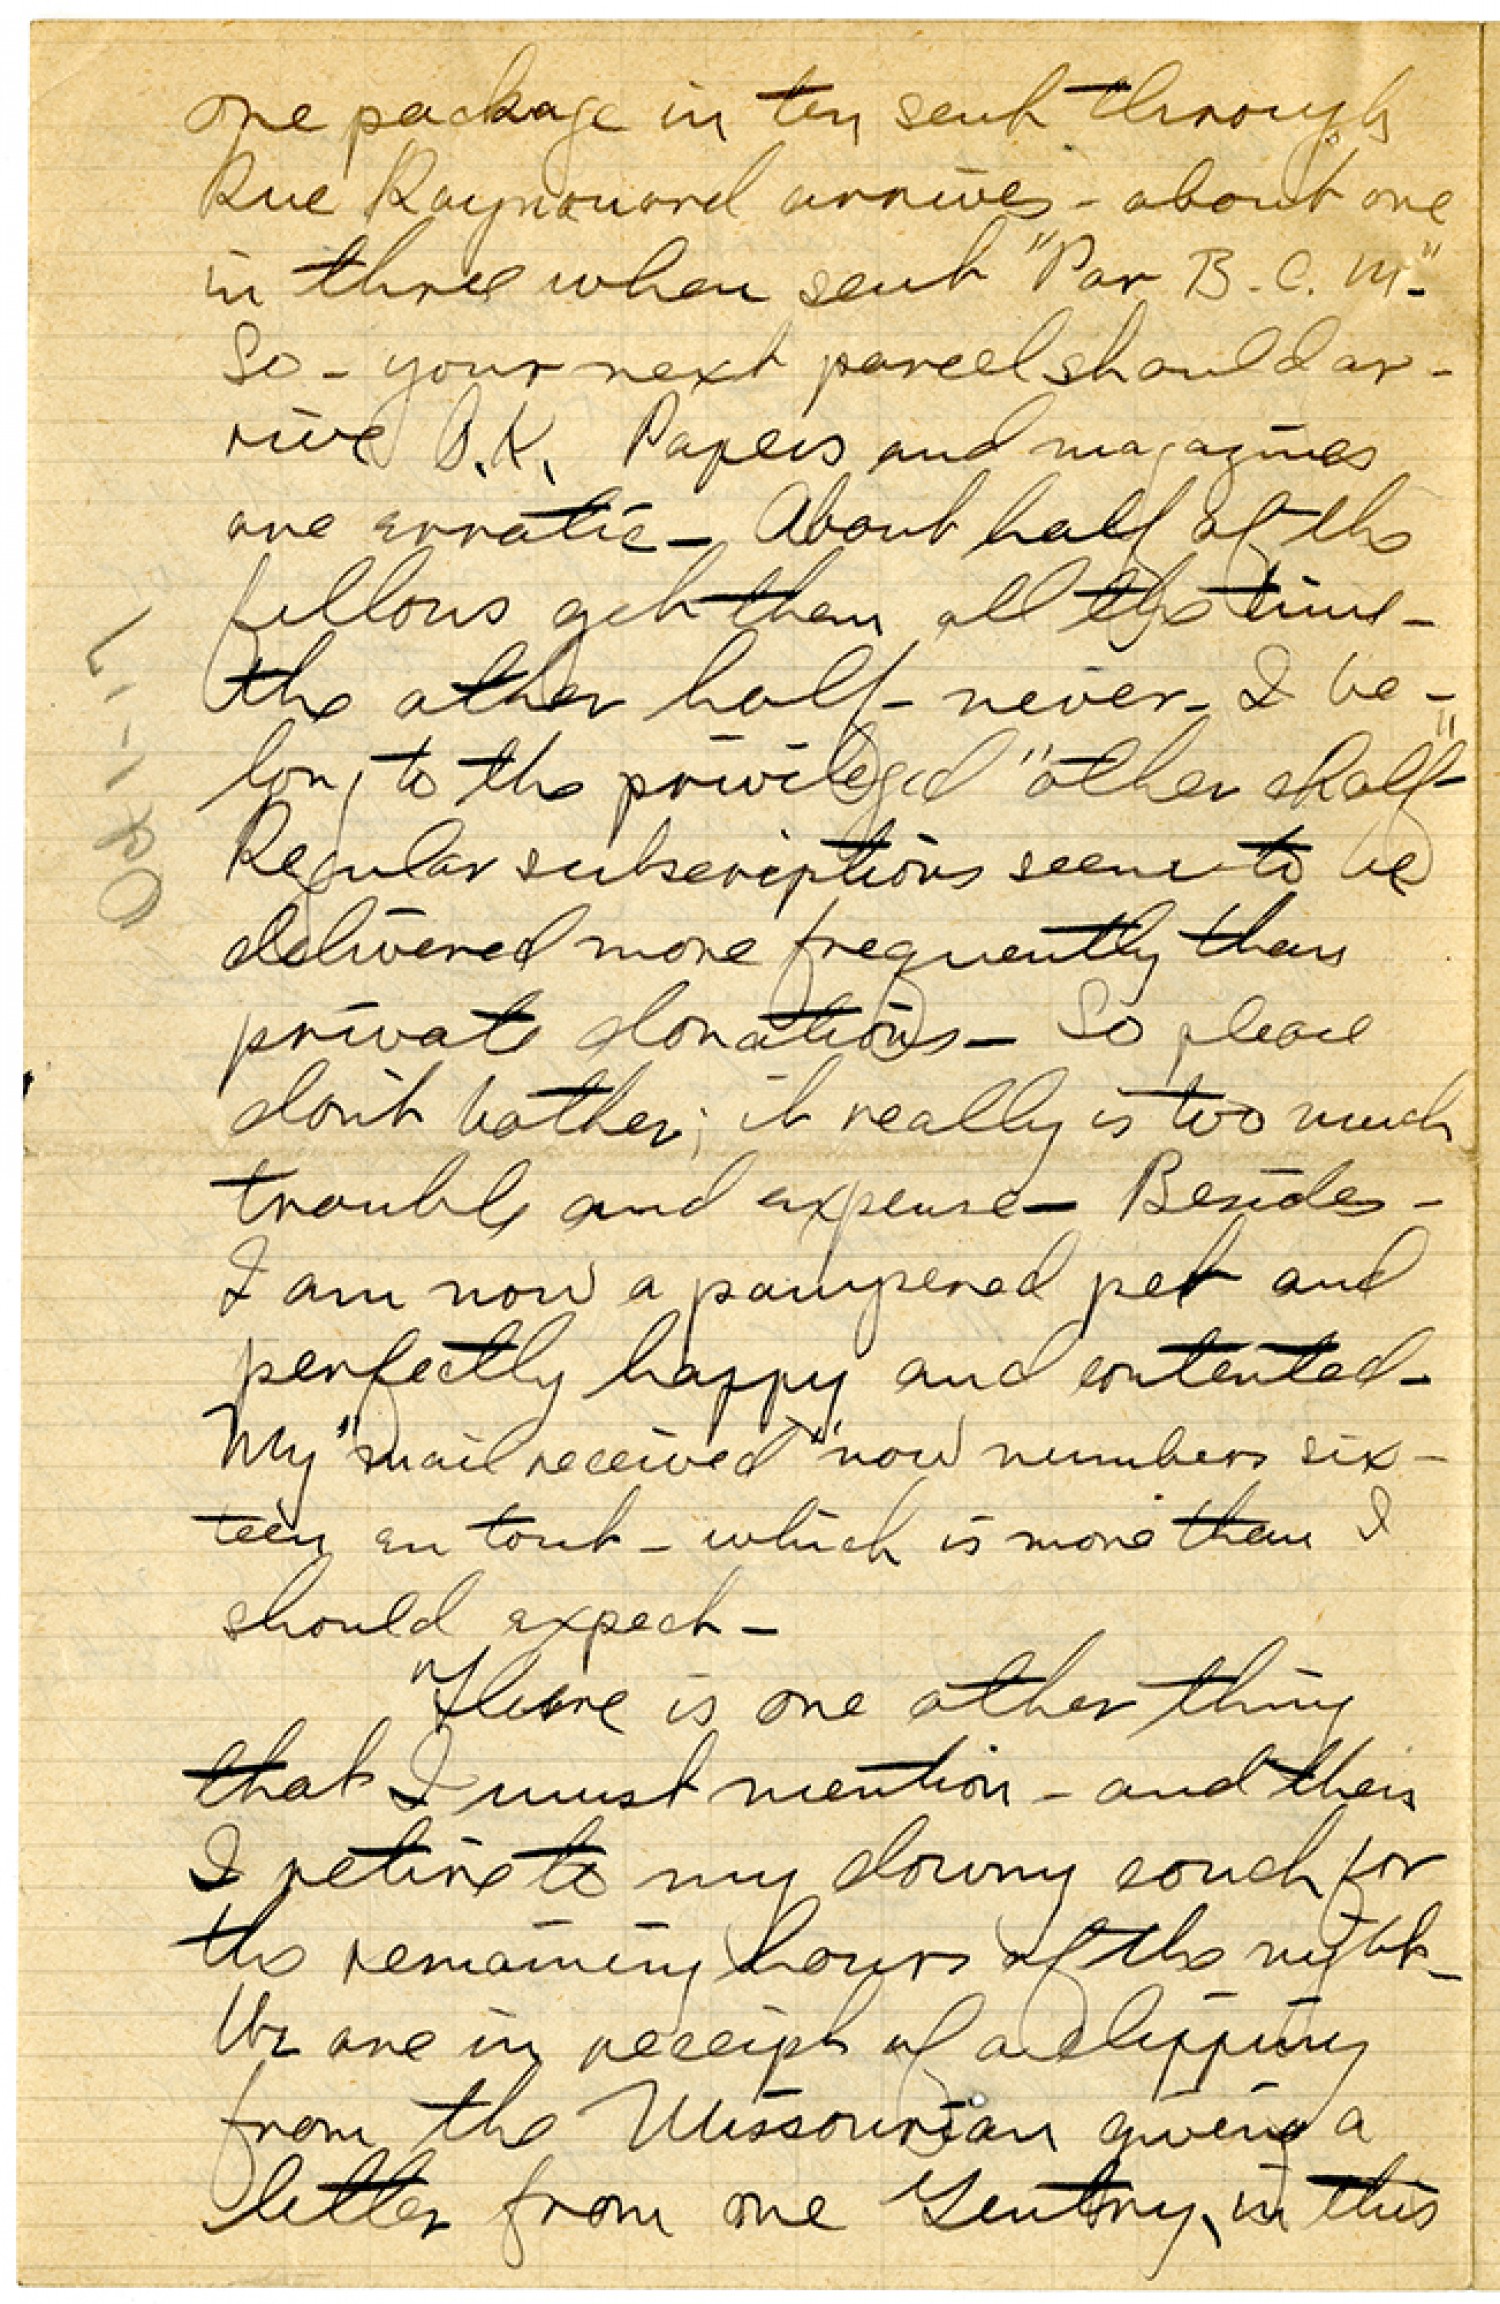 one package in ten sent through
Rue Raynouard arrives - about one
in three when sent "Par B. C. M."
So - your next parcel should ar-
rive O.K. Papers and magazines
are erratic - About half of the
fellows get them all the time -
the other half - never - I be-
long to the privileged "other half"
Regular subscriptions seem to be
delivered more frequently than
private donations - So please
don't bother; it really is too much
trouble and expense - Besides -
I am now a pampered pet and
perfectly happy and contented -
My "mail received" now numbers six-
teen en tout - which is more than I
should expect -
There is one other thing
that I must mention - and then
I retire to my downy couch for
the remaining hours of the night -
We are in receipt of a clipping
from the Missourian giving a
letter from one Gentry, in this